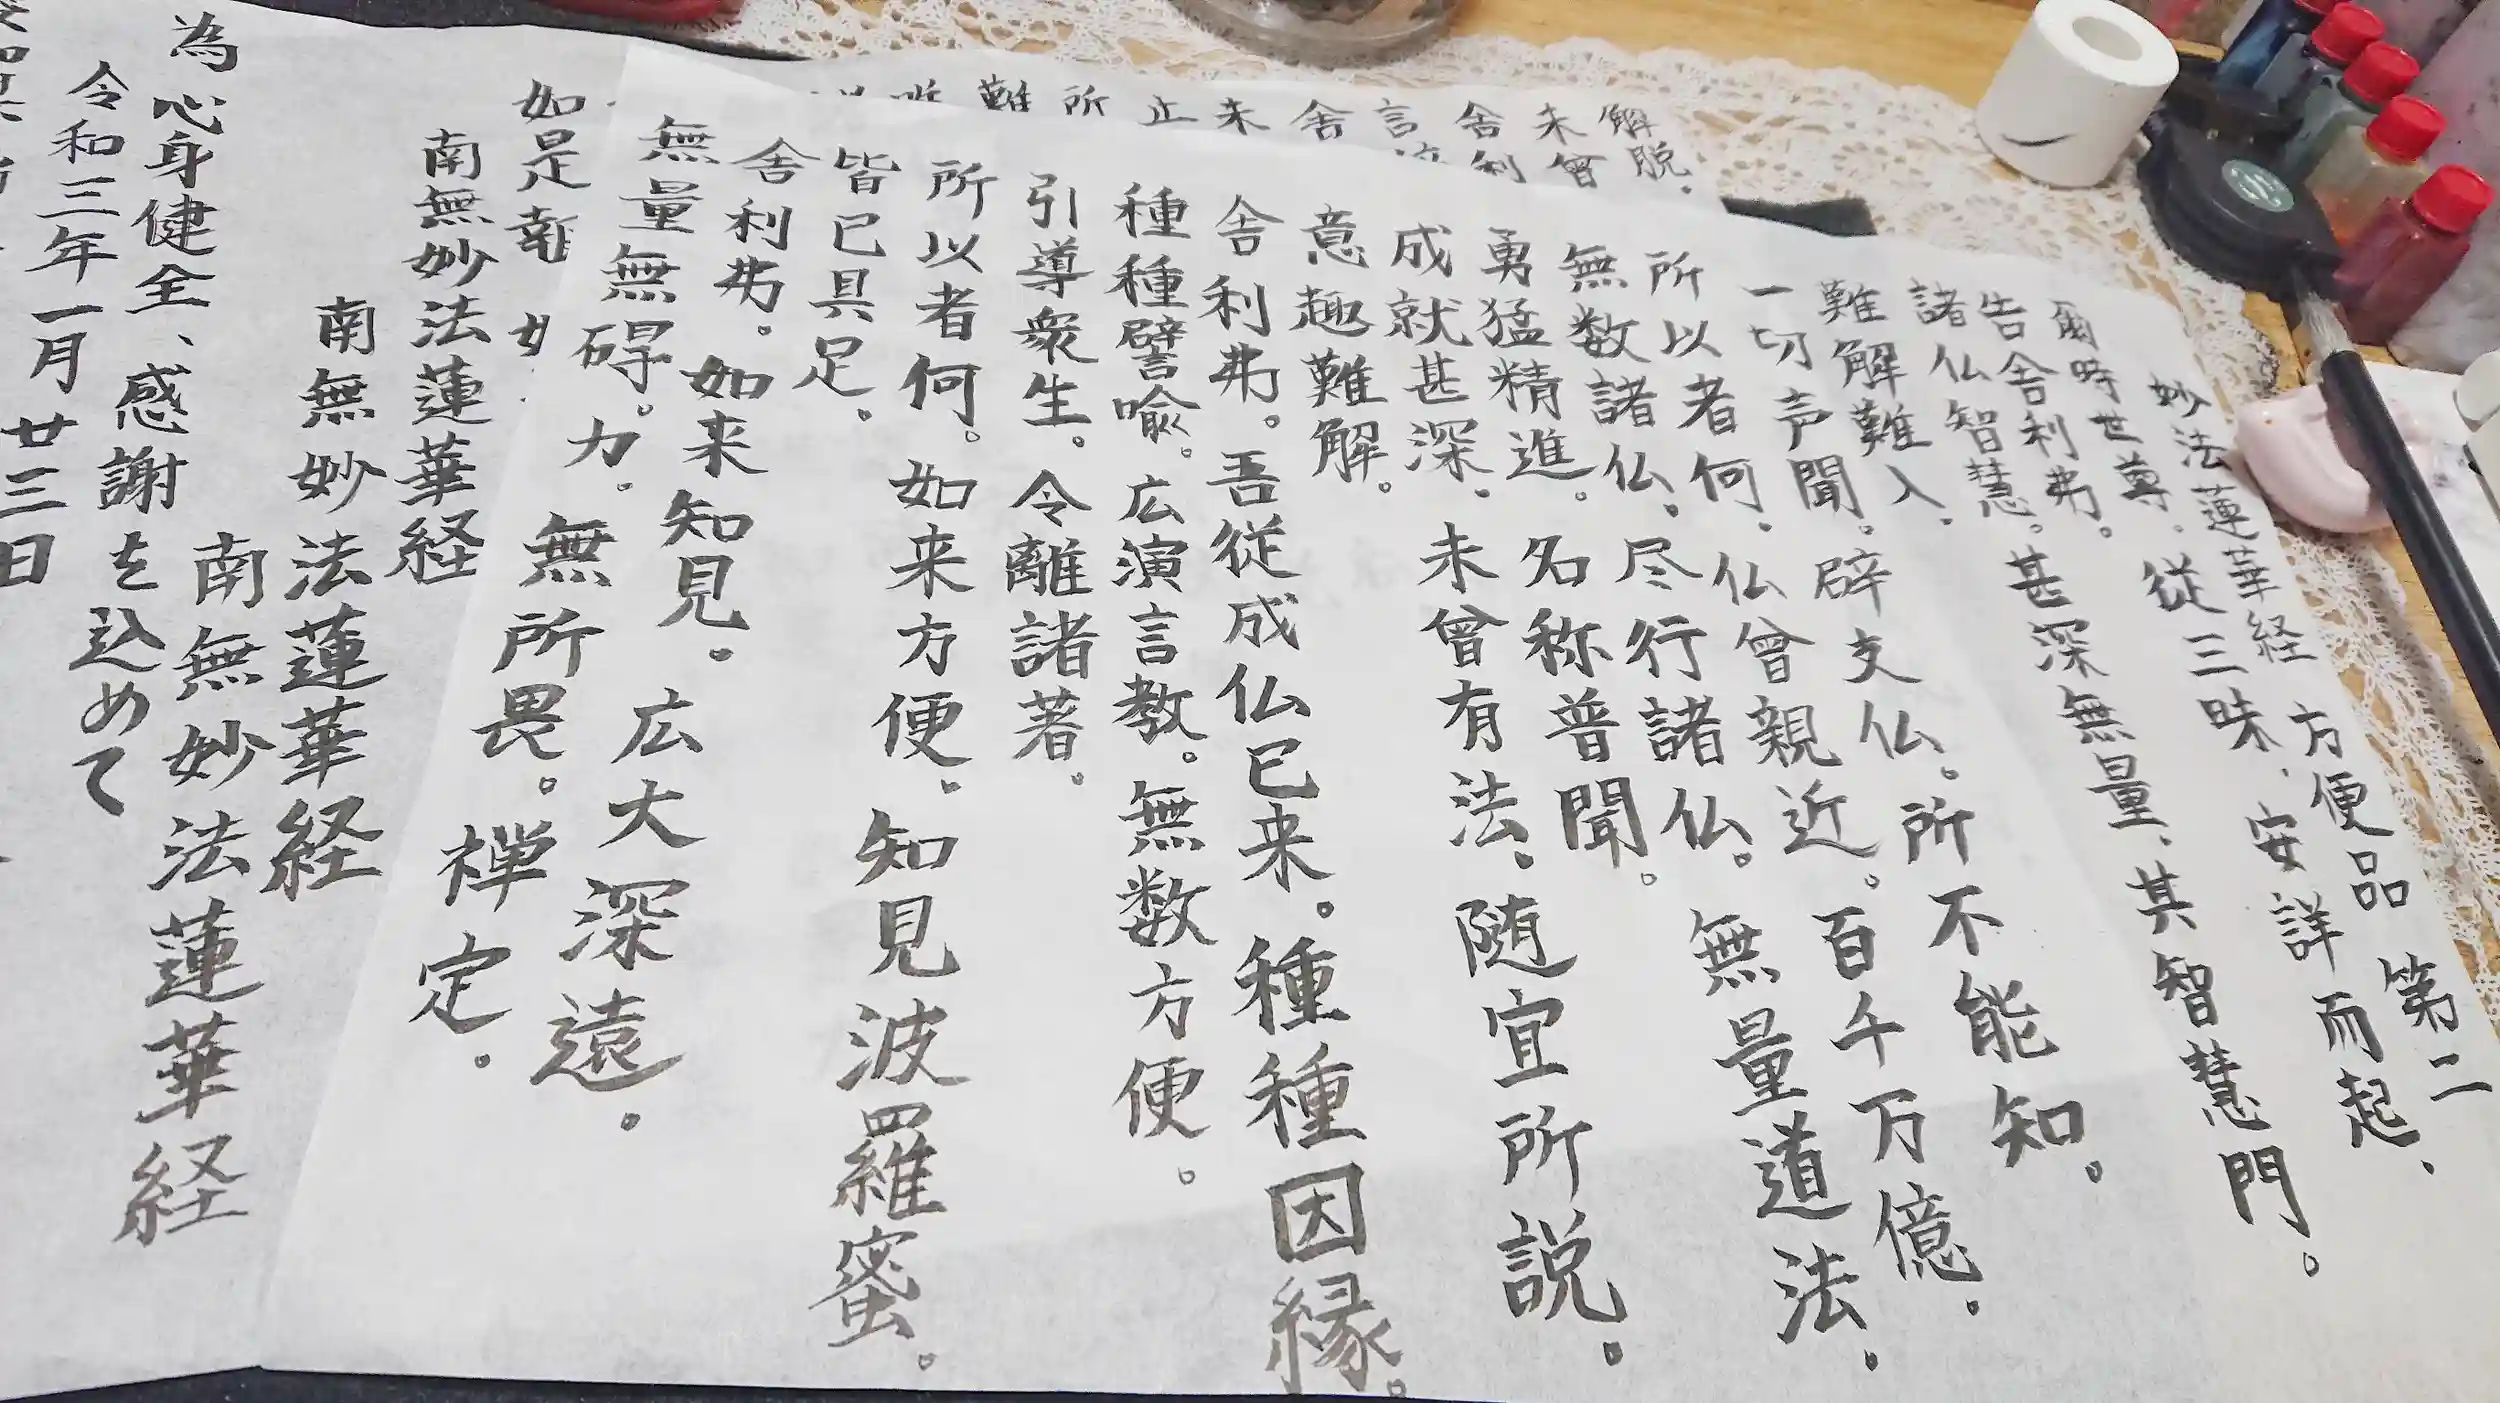 妙法蓮華経 方便品 第二
爾時世尊。従三昧、安詳而起、
告舎利弗。甚深無量、其智慧門。
諸仏智慧。
難解難入、
一切声聞。辟支仏。所不能知。
所以者何、仏曾親近。百千万億、
無数諸仏、尽行諸仏。無量道法、
勇猛精進。名称普聞。
成就甚深、未曾有法、随宜所説。
意趣難解。
舎利弗。吾従成仏已来。種種因縁。
種種譬喩。広演言教。無数方便。
引導衆生。令離諸著。
所以者何。如来方便、知見波羅蜜。
皆已具足。
舎利弗。如来知見。広大深遠。
無量無碍。力、無所畏。禅定、
解脱、
未曾
舎利
言
舎
未
止
所
難
如是
南無妙法蓮華経
南無妙法蓮華経
南無妙法蓮華経
為心身健全、感謝を込めて
令和三年一月廿三日